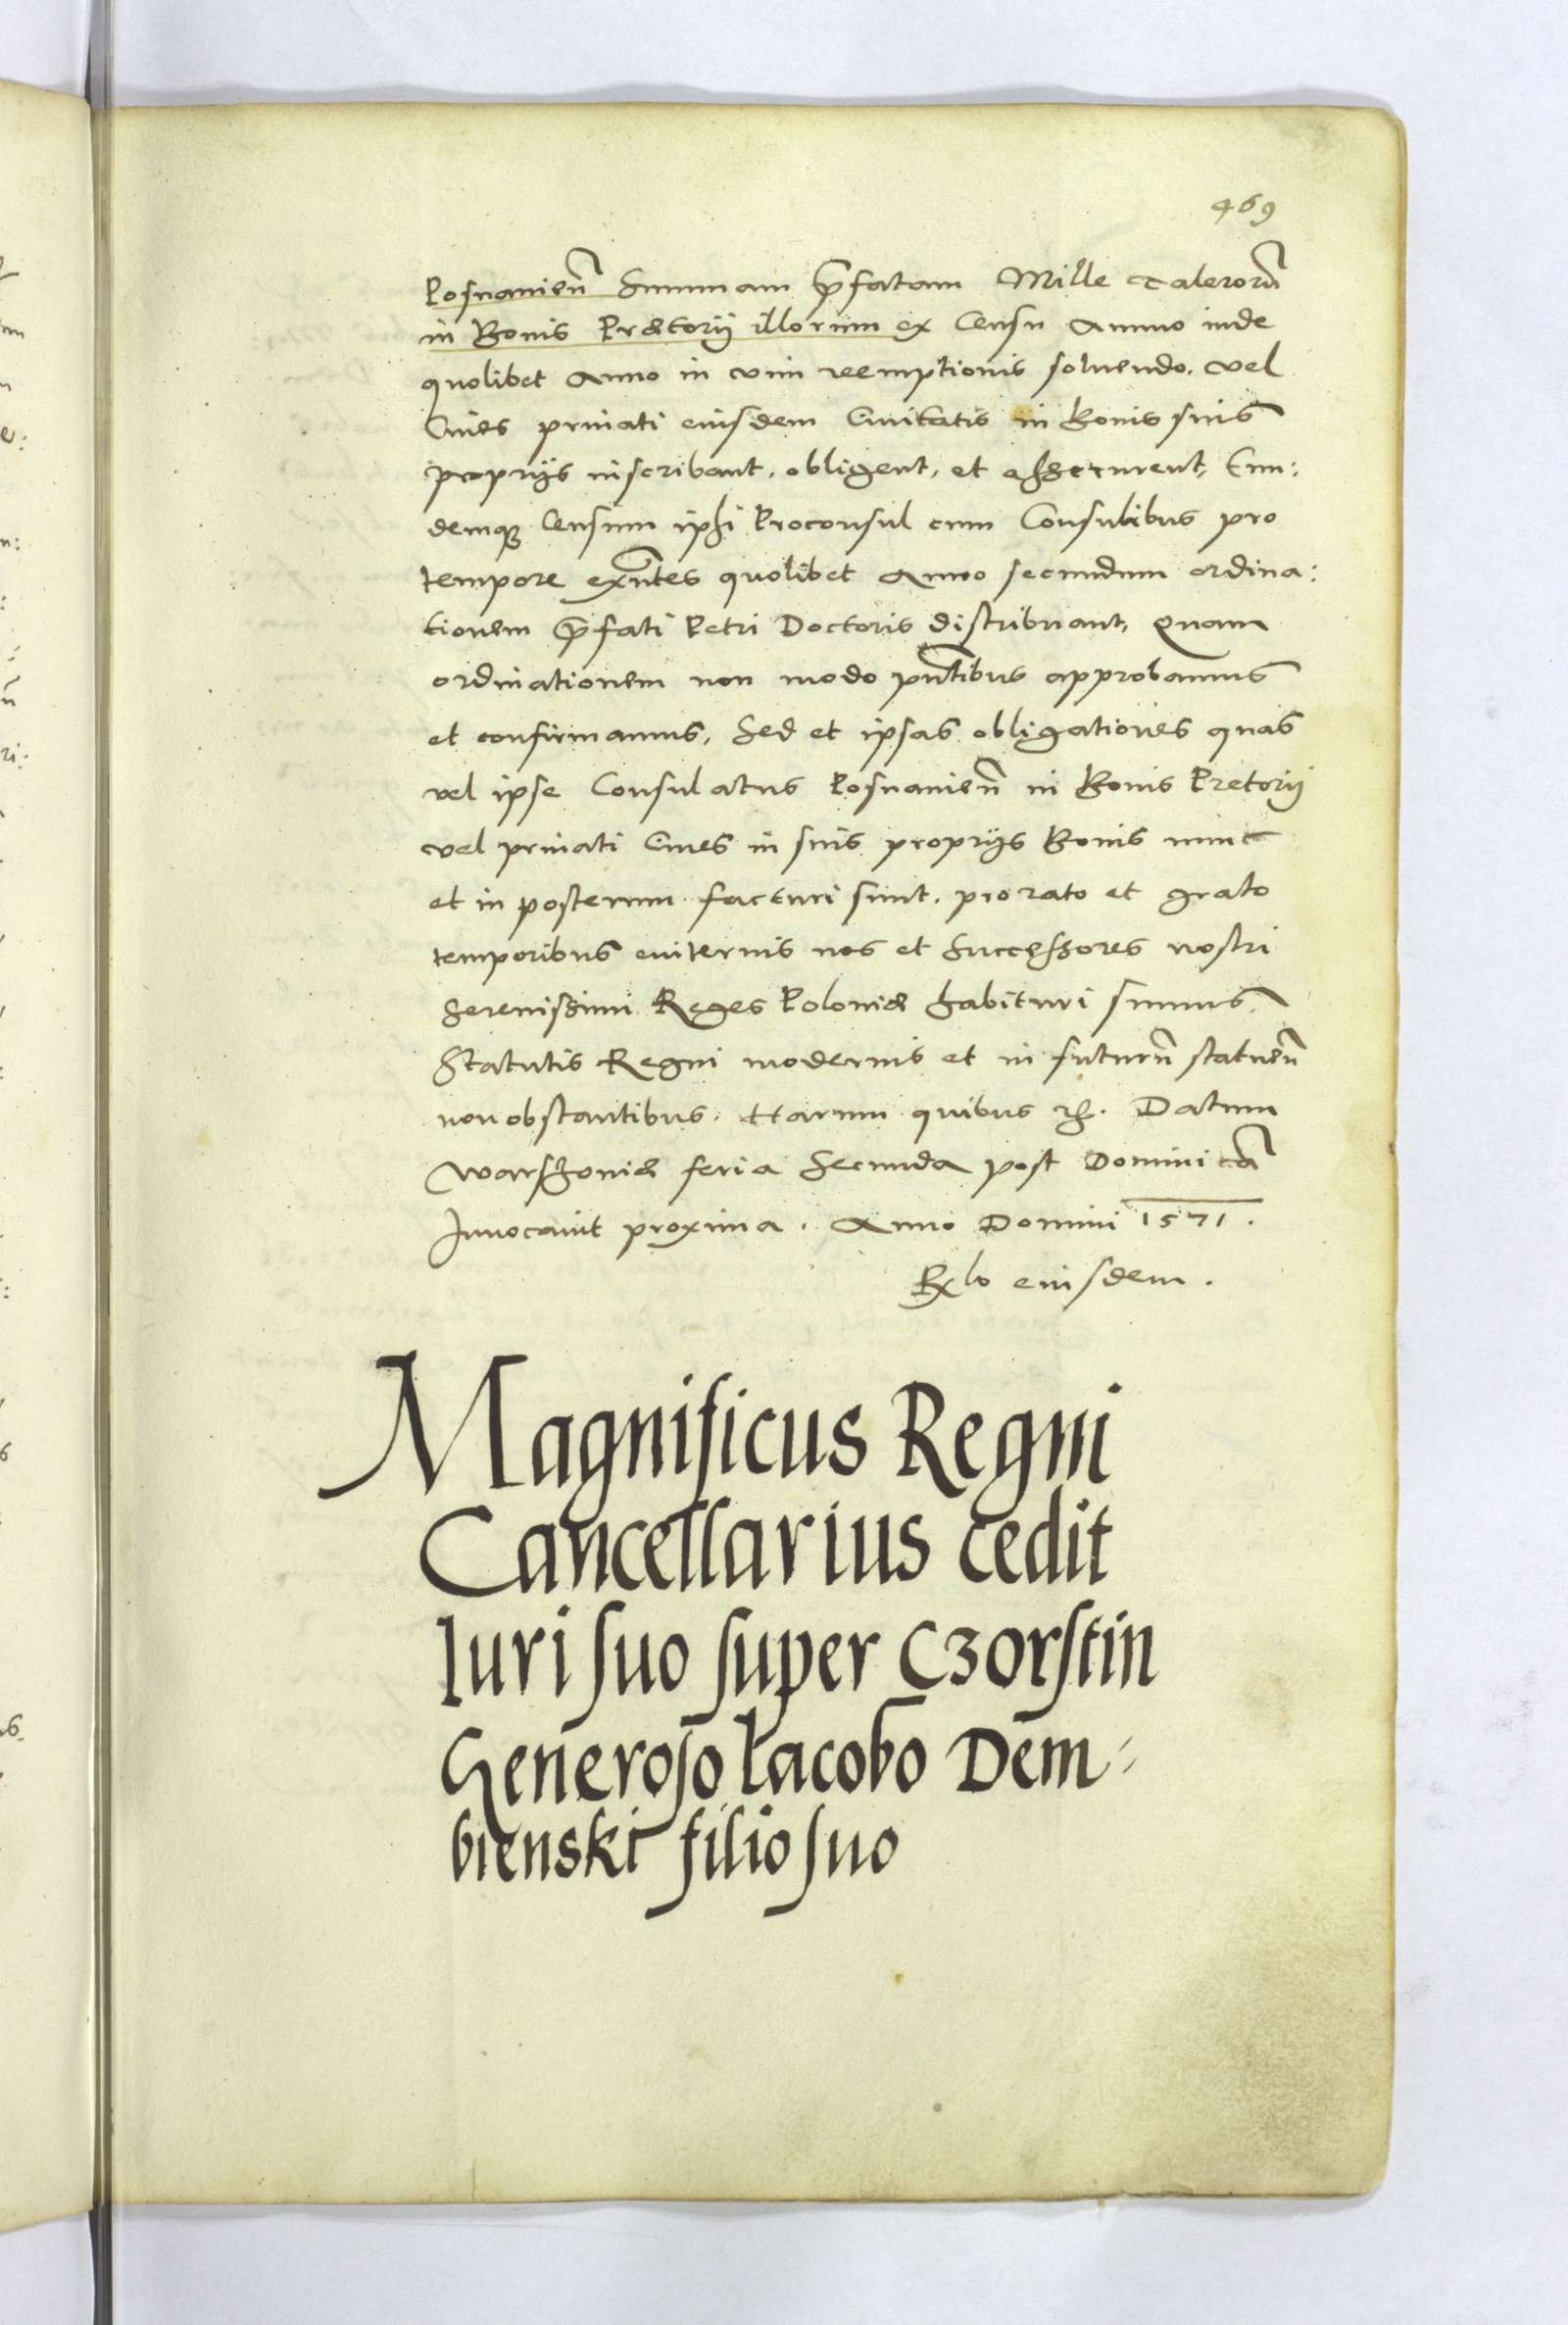 469
Posnanien̄ Summam p̄fatam Mille Talerorū
in Bonis Prætorij illorum ex Censu Annuo inde
quolibet Anno in vim reemptionis soluendo. vel
Ciues priuati eiusdem Ciuitatis in Bonis suis
proprijs inscribant, obligent, et assecurent, Eun:
demq3 Censum ipsi Proconsul cum Consulibus pro
tempore exn̄tes quolibet Anno secundum ordina:
tionem p̄fati Petri Doctoris distribuant, Quam
ordinationem non modo pn̄tibus approbamus
et confirmamus, Sed et ipsas obligationes quas
vel ipse Consulatus Posnanien̄ in Bonis Pretorij
vel priuati Ciues in suis proprijs Bonis nunc
et in posterum facturi sunt, pro rato et grato
temporibus euiternis nos et Successores nostri
Serenissimi Reges Poloniæ habituri sumus,
Statutis Regni modernis et in futurū statuen̄
non obstantibus. Harum quibus Datum
Warschouiæ feria Secunda post Dominicā
Inuocauit proxima. Anno Domini 1571.
Relo eiusdem.
Magnificus Regni
Cancellarius cedit
Iuri suo super Czorstin
Generoso Iacobo Dem-
bienski filio suo